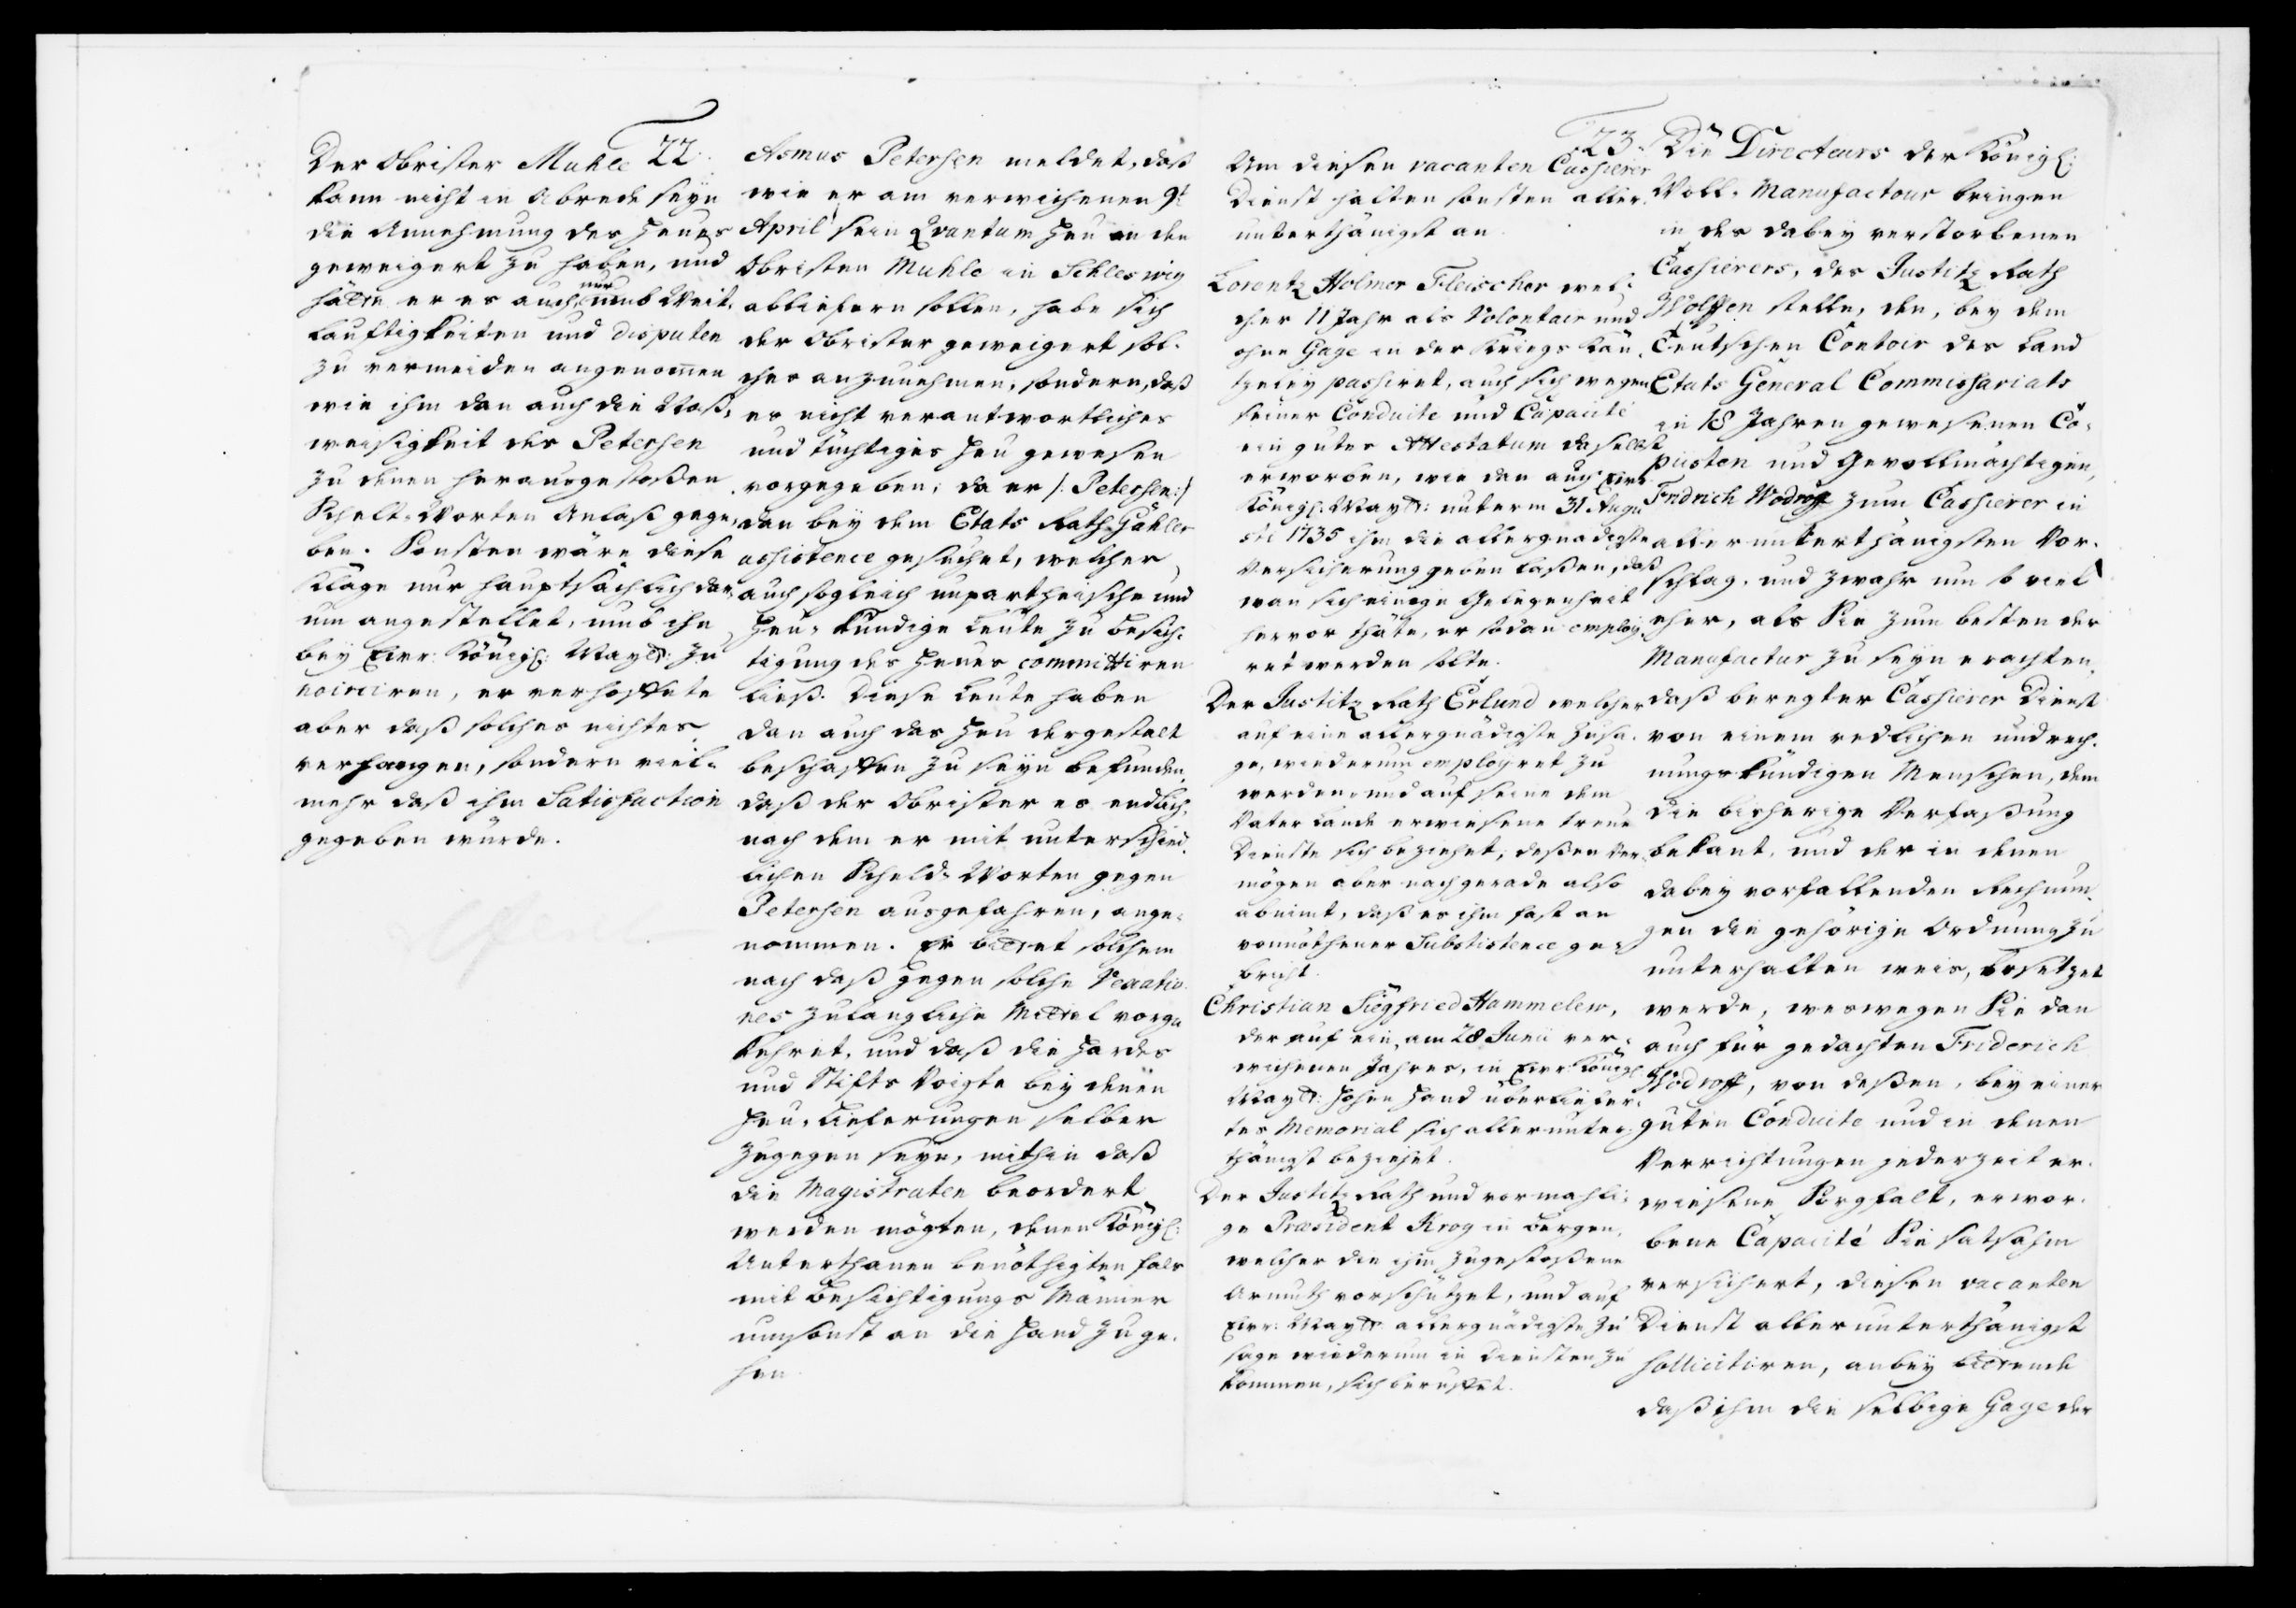 22.
Der Obrister Muhle
kann nicht in Abrede seyn
die Annehmung des Heues
geweigert zu haben, und
hätte er es auch nur umb Weit-
läuftigkeiten und disputen
zu vermeiden angenommen
wie ihm dan auch die Naß-
weisigkeit des Petersen
zu denen herausgestoßen
Schelt-Worten Anlaß gege-
ben. Sonsten wäre diese
Klage nur hauptsächlich dar-
um angestellet, umb ihn
bey Eurer Königl: Mayt: zu
noirciren, er verhoffete
aber daß solches nichtes
verfangen, sondern viel-
mehr daß ihm Satisfaction
gegeben würde.
Asmus Petersen meldet, daß
wie er am verwichenen 9t
April sein Qvantum Heu an den
Obristen Muhle in Schleswig
abliefern sollen, habe sich
der Obrister geweigert sol-
ches anzunehmen, sondern, daß
es nicht verantwortliches
und tüchtiges Heu gewesen
vorgegeben; da er /: Petersen :/
dan bey dem Etats Rath Gähler
assistence gesuchet, welcher
auch sogleich unpartheische und
Heu-kundige Leute zu besich-
tigung des Heues committiren
ließ. Diese Leute haben
dan auch das Heu dergestalt
beschaffen zu seyn befunden,
daß der Obrister es endlich,
nach dem er mit unterschied-
lichen Scheld-Worten gegen
Petersen ausgefahren, ange-
nommen. Er bittet solchem
nach daß gegen solche Vexatio-
nes zulangliche Mittel vorge
kehret, und daß die Hardes
und Stifts Voigte bey denen
Heu-Lieferungen selber
zugegen seyn, mithin daß
die Magistraten beordert
werden mögten, denen Königl:
Unterthanen benöthigten fals
mit Besichtigungs Männer
umsonst an die Hand zu ge-
hen.
23.
Um diesen vacanten Cassierer
Dienst halten sonsten aller-
unterthänigst an.
Lorentz Holmer Fleischer wel-
cher 11 Jahr als Volontair und
ohne Gage in der Kriegs Can-
tzeley passiret, auch sich wegen
seiner Conduite und Capacité
ein gutes Attestatum daselbst
erworben, wie dan auch Eure
Königl. Mayt: unterm 31 Augu
sti 1735 ihm die allergnädigste
Versicherung geben laßen, daß
wan sich einige Gelegenheit
hervor thäte, er sodan employ-
ret werden solte.
Der Justitz Rath Erlund welcher
auf eine allergnädigste Zusa-
ge, wiederum employret zu
werden, und auf seine dem
Vaterlande erwiesene treue
Dienste sich beziehet, deßen Ver-
mögen aber nachgerade also
abnimt, daß es ihm fast an
vonnöthener Subsistence ge-
bricht.
Christian Siegfried Hammelew,
der auf ein, am 28 Junii ver-
wichenen Jahres, in Eurer Königl
Mayt: Hohen Hand überliefer-
tes Memorial sich allerunter-
thänigst beziehet.
Der Justitz Rath und vormahli-
ge Præsident Krog in Bergen,
welcher die ihm zugestoßene
Armuth vorschützet, und auf
Eurer Mayt: allergnädigste Zu
sage wiederum in Diensten zu
kommen, sich beruffet.
Die Directeurs der Königl:
Woll-Manufactour bringen
in des dabey verstorbenen
Cassierers, des Justitz Rath
Wolffen stelle, den, bey dem
Teutschen Contoir des Land
Etats General Commissariats
in 18 Jahren gewesenen Co-
piisten und Gevollmächtigen,
Fridrich Wodroff zum Cassierer in
allerunterthänigsten Vor-
schlag, und zwahr um so viel
eher, als Sie zum besten der
Manufactur zu seyn erachten,
daß beregter Cassierer Dienst
von einem redlichen und rech-
nungskündigen Menschen, dem
die bisherige Verfaßung
bekant, und der in denen
dabey vorfallenden Rechnun-
gen die gehörige Ordnung zu
unterhalten weis, besetzet
werde, weswegen Sie dan
auch für gedachten Friderich
Wodroff, von deßen, bey einer
guten Conduite und in denen
Verrichtungen jederzeit er-
wiesene Sorgfalt, erwor-
bene Capacité Sie satsahm
versichert, diesen vacanten
Dienst allerunterthänigst
sollicitiren, anbey bittende
daß ihm die selbige Gage der